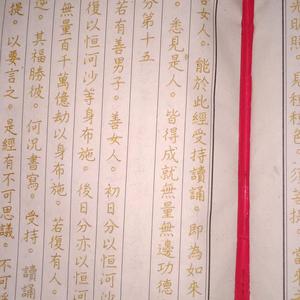 善女人。能於此經受持讀誦。即為如來
。悉見是人。皆得成就無量無邊功德
分第十五
若有善男子。善女人。初日分以恒河沙
復以恒河沙等身布施。後日分亦以恒河
無量百千萬億劫以身布施。若復有人。
逆。其福勝彼。何況書寫。受持。讀誦
提。以要言之。是經有不可思議。不可